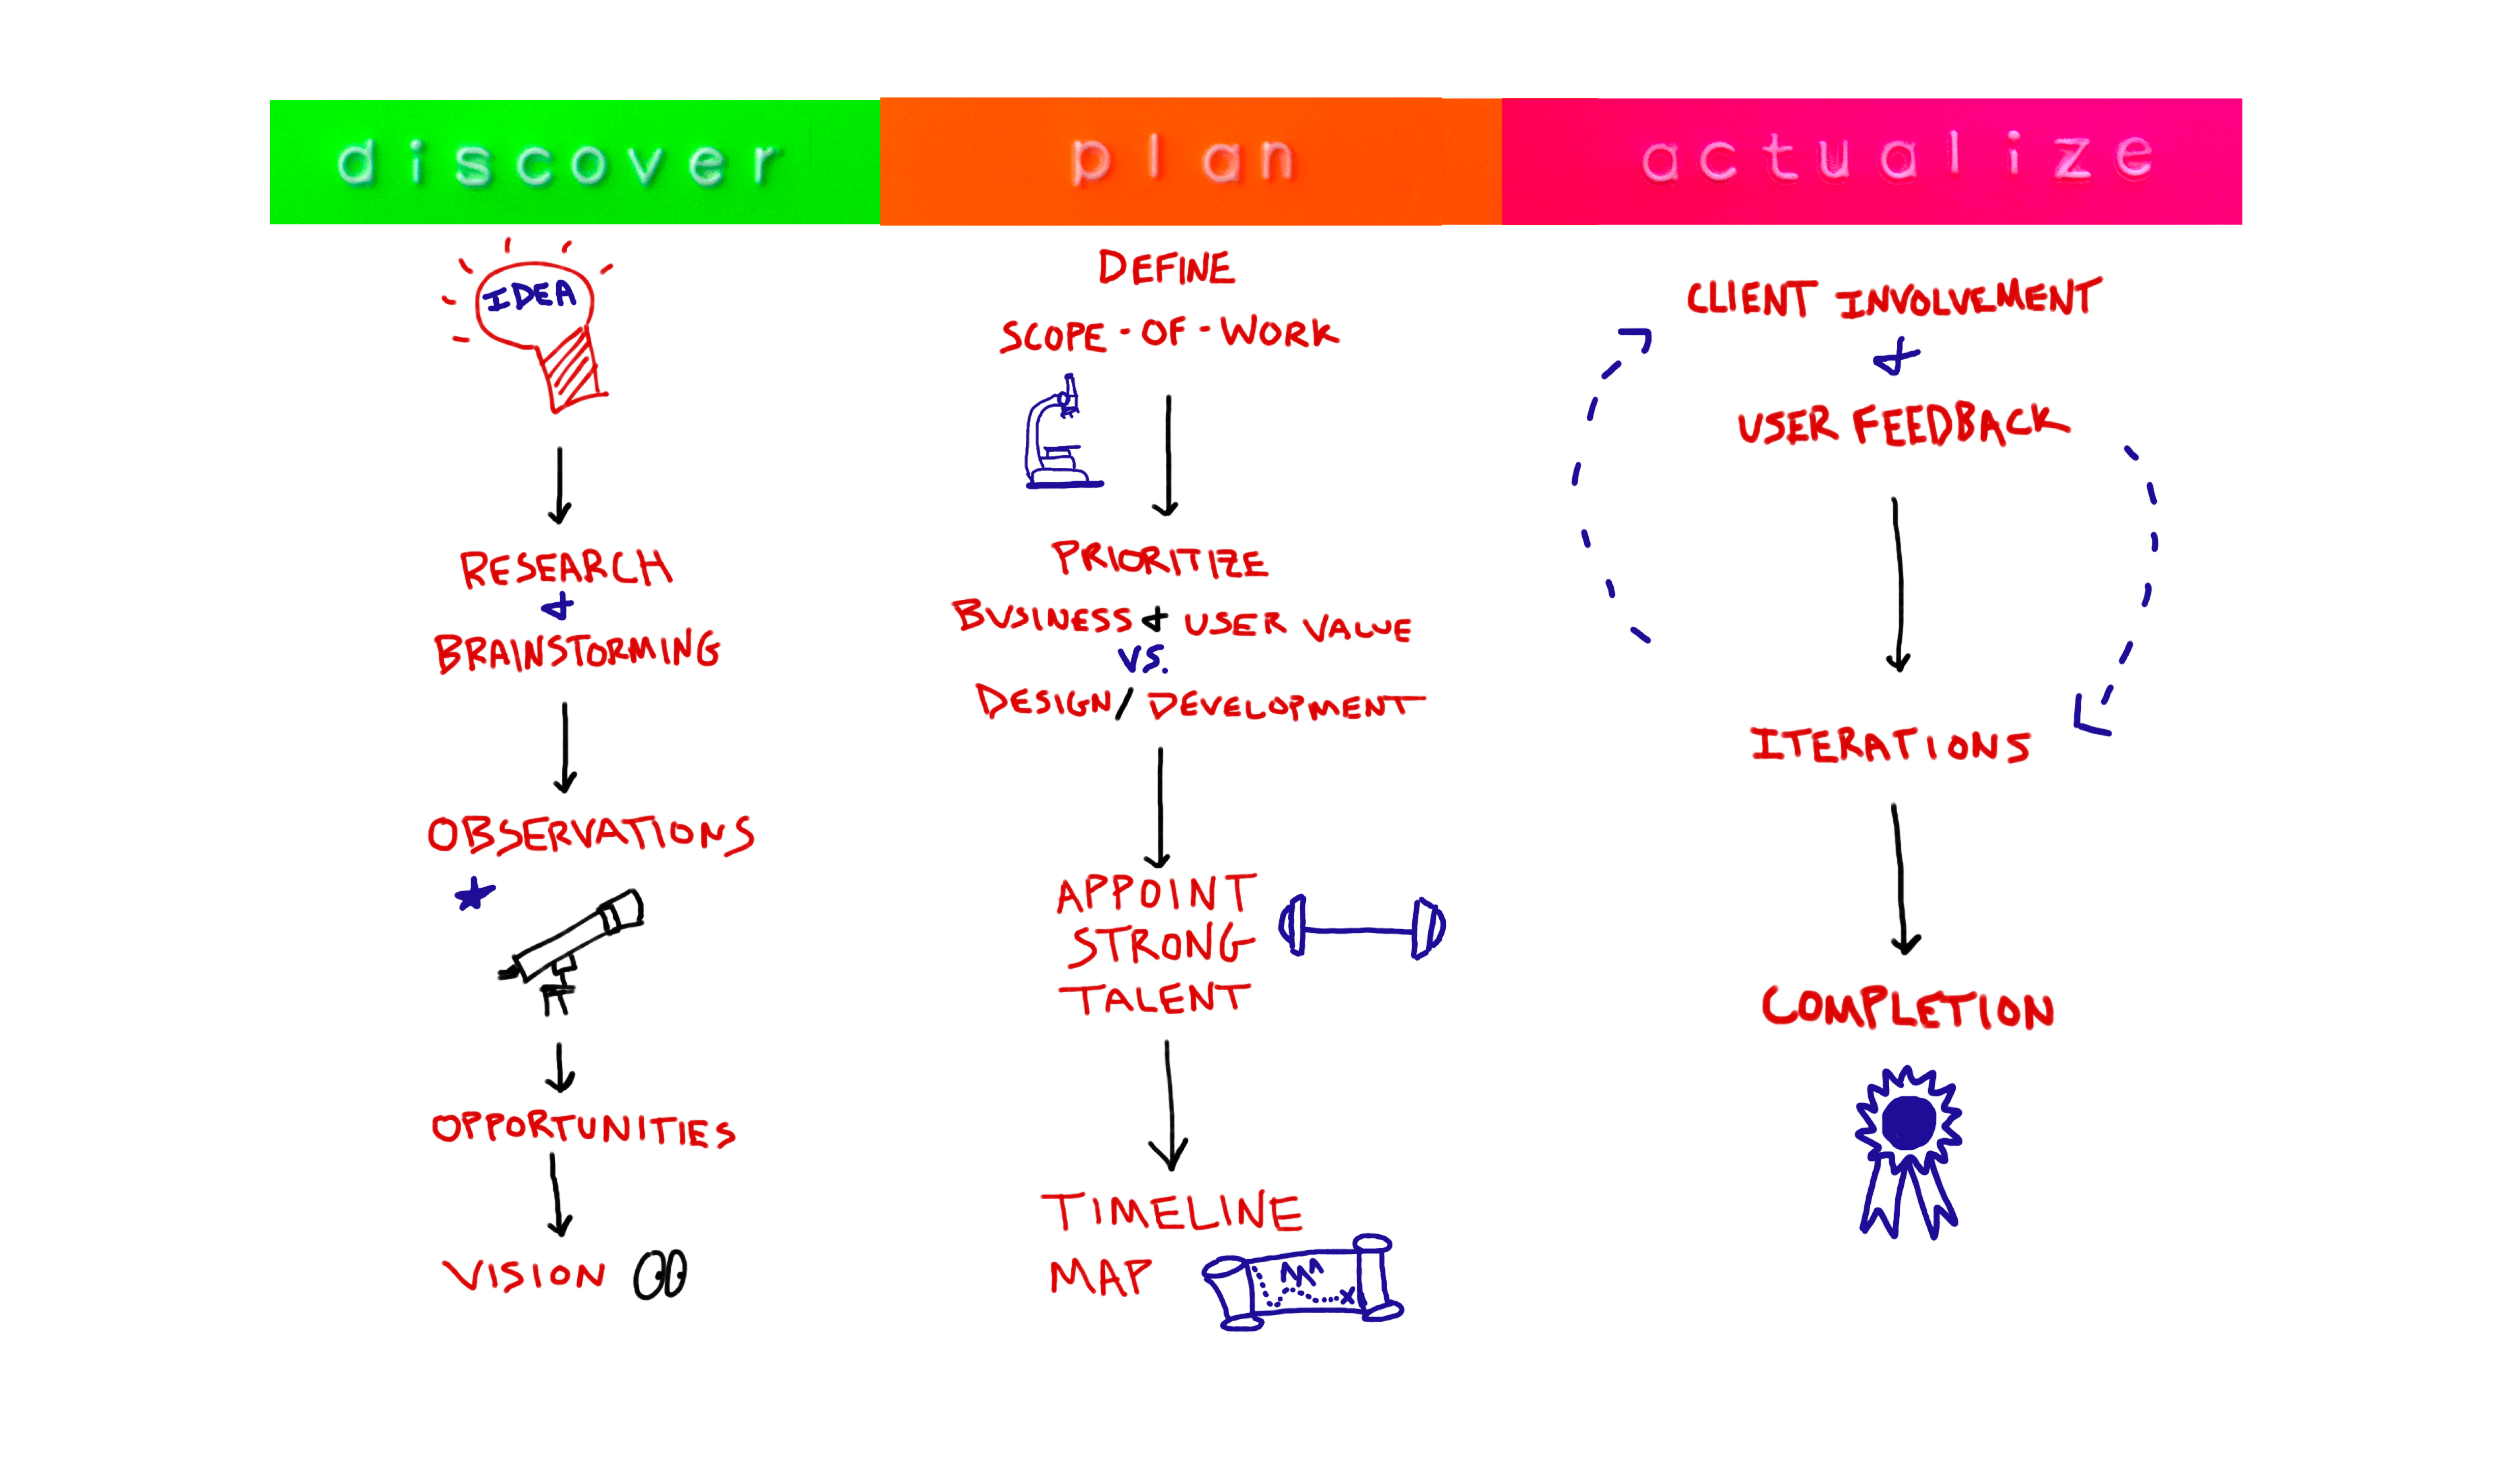 discover
IDEA
RESEARCH
&
BRAINSTORMING
OBSERVATIONS
OPPORTUNITIES
VISION
plan
DEFINE
SCOPE-OF-WORK
PRIORITIZE
BUSINESS & USER VALUE
VS.
DESIGN/DEVELOPMENT
APPOINT
STRONG
TALENT
TIMELINE
MAP
actualize
CLIENT INVOLVEMENT
&
USER FEEDBACK
ITERATIONS
COMPLETION